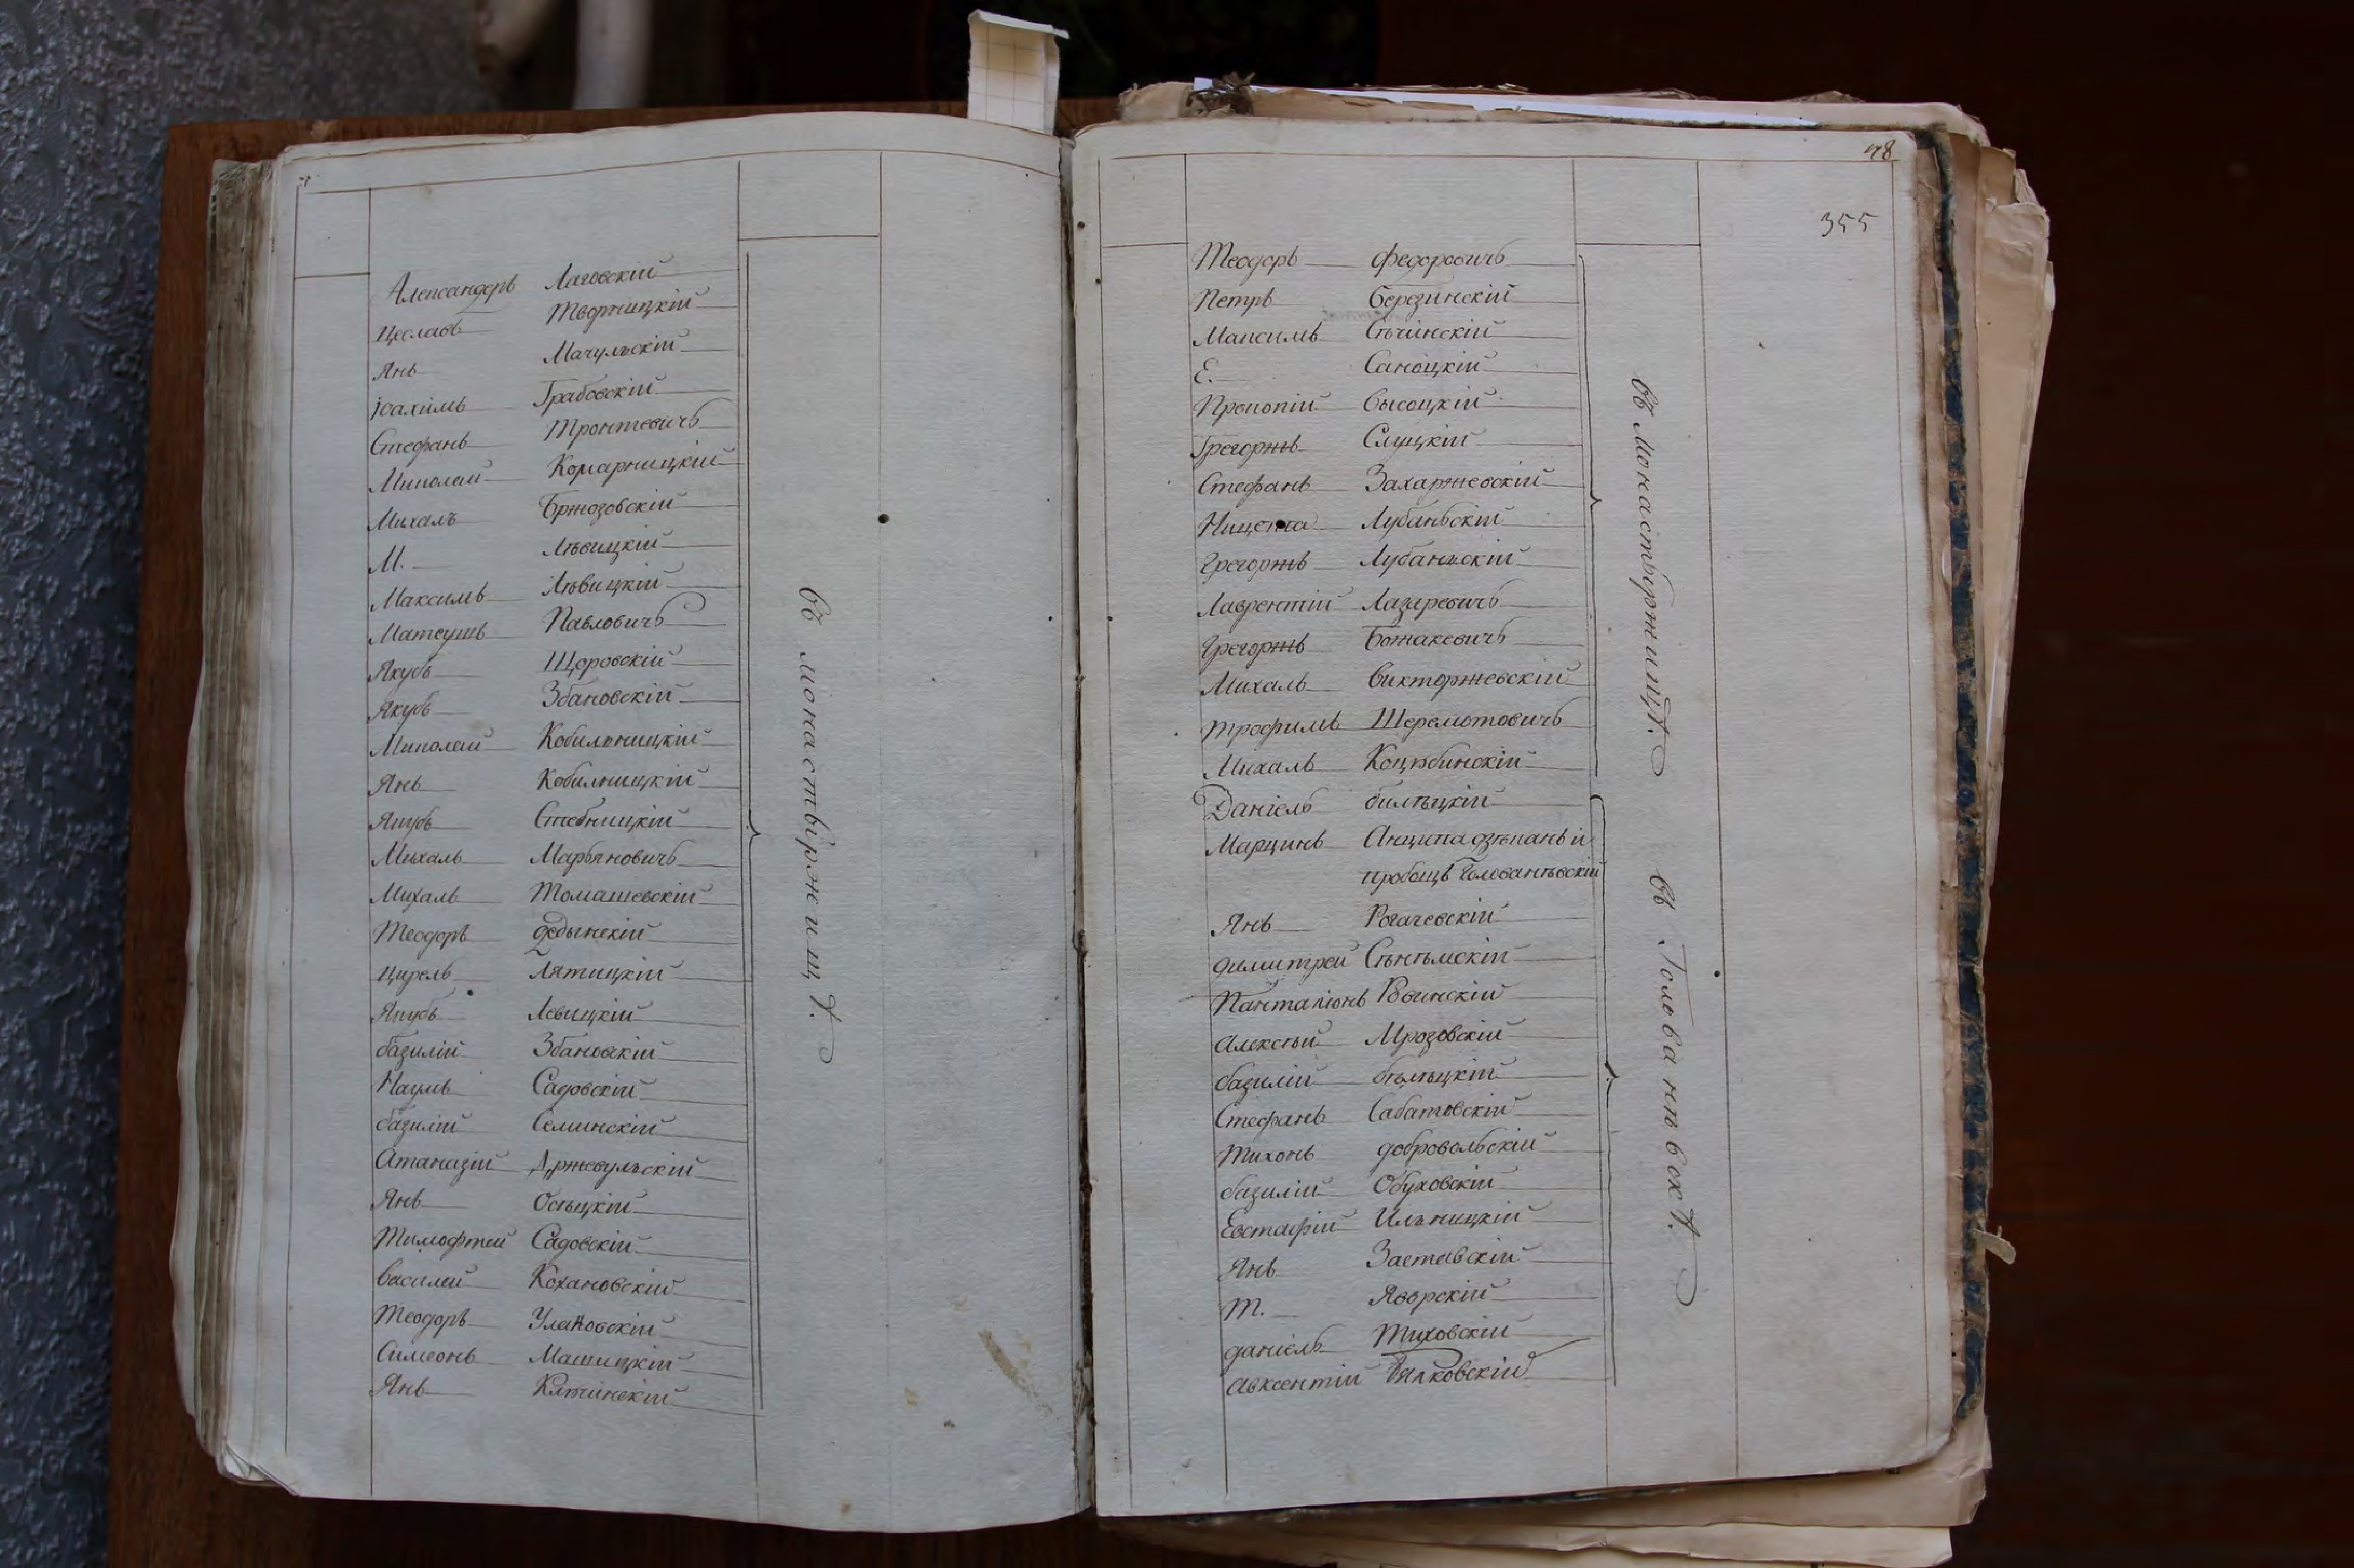 Александеръ Лаговскій
Цеславъ Творницкій
Янъ Мачульскій
Іоахимъ Грабовскій
Стефанъ Тронтевичъ
Миколай Комарницкій
Михалъ Бржозовскій
М. Лѣвицкій
Максимъ Лѣвицкій
Матеушъ Павловичъ
Якубъ Щеровскій
Якубъ Збановскій
Миколай Кобильницкій
Янъ Кобильницкій
Якубъ Стебницкій
Михалъ Марьяновичъ
Михалъ Томашевскій
Теодоръ Дедынскій
Цирель Лятицкій
Якубъ Левицкій
Базилій Збановскій
Наумъ Садовскій
Базилій Семинскій
Атаназій Држевульскій
Янъ Осѣцкій
Тимофтей Садовскій
Василей Кохановскій
Теодоръ Улановскій
Симеонъ Машицкій
Янъ Клечинскій
въ монастыржищѣ.
78
355
Теодоръ Федоровичъ
Петръ Березинскій
Максимъ Сѣчинскій
Е. Саноцкій
Прокопій Высоцкій
Грегоржъ Слуцкій
Стефанъ Захаржевскій
Никета Лубаньскій
Грегоржъ Лубаньскій
Лаврентій Лазаревичъ
Грегоржъ Божакевичъ
Михалъ Викторжевскій
Трофимъ Шереметовичъ
Михалъ Коцюбинскій
въ монастыржищѣ.
Даніель Билѣцкій
Марцинъ Анципа дзѣканъ и
пробощъ Голованѣвскій
Янъ Рогачевскій
Димитрей
Панталіонъ Рвинскій
Алексѣй Мрозовскій
Базилій Бѣлѣцкій
Стефанъ Сабатовскій
Тихонъ Добровольскій
Базилій Обуховскій
Евстафій Ильницкій
Янъ Заставскій
Т. Яворскій
Даніель Тиховскій
Авксентій
въ Голованѣвскѣ.